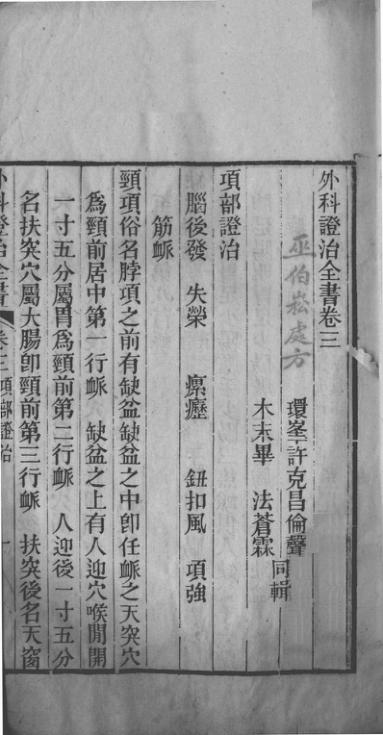 外科證治全書卷三
巫伯崧處方
環峯許克昌倫聲
木末畢 法蒼霖
同輯
項部證治
腦後發 失榮 瘰癧 鈕扣風 項強
筋䘑
頸項俗名脖項之前有缺盆缺盆之中卽任䘑之天突穴
爲頸前居中第一行䘑 缺盆之上有人迎穴喉閒開
一寸五分屬胃爲頸前第二行䘑 人迎後一寸五分
名扶突穴屬大腸卽頸前第三行䘑 扶突後名天窗
外科證治全書 卷三 項部證治 一